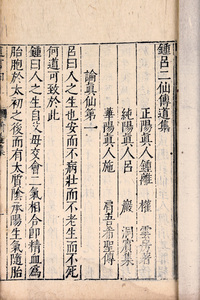 鍾呂二仙傳道集
正陽真人鍾離 權 雲房著
純陽真人呂 巖 洞賓集
華陽真人施 肩吾希聖傳
論真仙第一
呂曰人之生也安而不病壯而不老生而不死
何道可致於此
鍾曰人之生自父母交會二氣相合即精血為
胎胞於太初之後而有太質陰承陽生氣隨胎